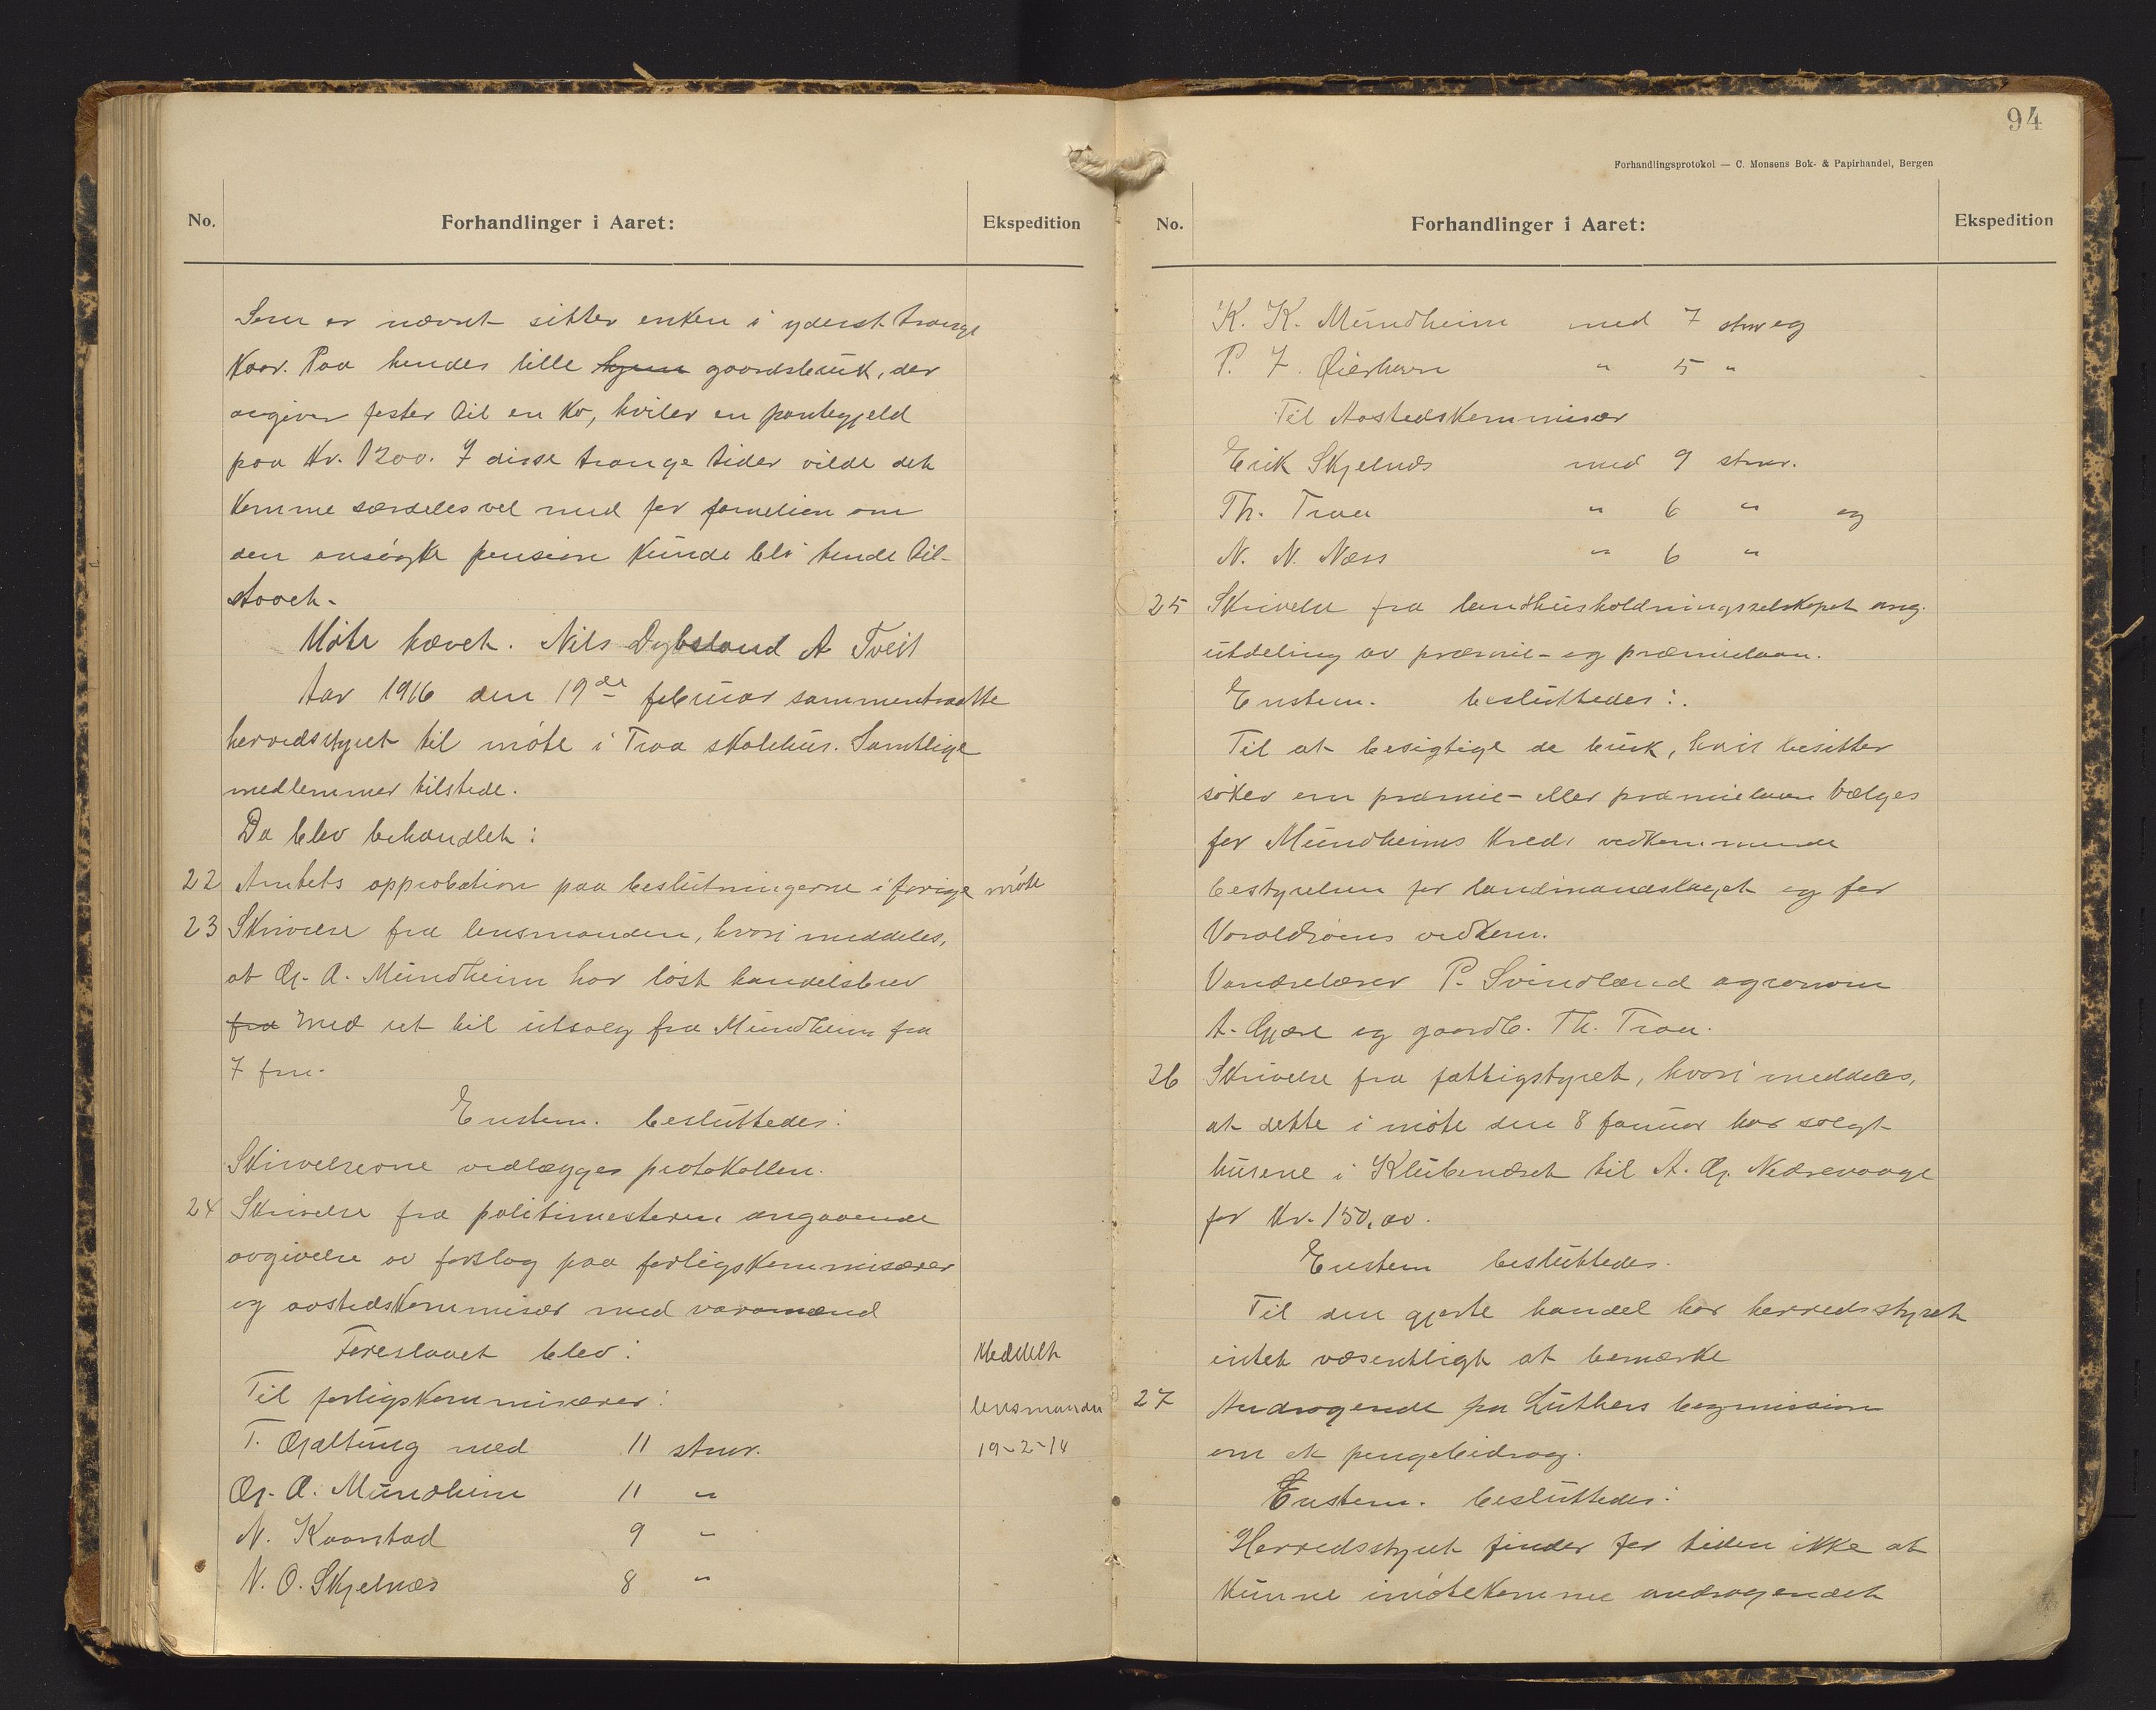 No.
Forhandlinger i Aaret:
Ekspedition
Som er nævnt sitter enken i yderst trange
kaar. Paa hendes lille hjem gaardsbruk, der
avgiver foster til en ko, hviler en pantegjeld
paa Kr. 1200. I disse trange tider vilde det
komme særdeles vel med for familien om
den ansøgte pension kunde bli hende til-
staaet.
Møte hævet. Nils Dybsland A Tveit
Aar 1916 den 19de februar sammentraatte
herredsstyret til møte i Traa skolehus. Samtlige
medlemmer tilstede.
Da blev behandlet:
22 Amtets approbation paa beslutningerne i forige møte
23 Skrivelse fra lensmanden, hvori meddeles,
at Gj. A. Mundheim har løst handelsbrev
fra med ret til utsalg fra Mundheim fra
7 fm.
Enstem. besluttedes:
Skrivelserne vedlægges protokollen.
24 Skrivelse fra politimesteren angaaende
avgivelse av forslag paa forligskommisærer
og aastedskommisær med varamænd
Foreslaaet blev:
Meddelt
Til forligskommisærer:
lensmanden
T. Gjeltung med 11 stmr.
19-2-14
Gj. A. Mundheim 11 "
N. Kaarstad 9 "
N. O. Skjelnæs 8 "
94
Forhandlingsprotokol — C. Monsens Bok- & Papirhandel, Bergen
No.
Forhandlinger i Aaret:
Ekspedition
K. K. Mundheim med 7 stmr og
P. J. Øierhavn " 5 "
Til Aastedskommisær
Erik Skjelnæs med 9 stmr.
Th. Traa " 6 " og
N. N. Næss " 6 "
25 Skrivelse fra landhusholdningsselskapet ang.
utdeling av præmie- og præmielaan.
Enstem. besluttedes:
Til at besigtige de bruk, hvis besitter
søker om præmie- eller præmielaan vælges
for Mundheims kreds vedkommende
bestyrelsen for landmandslaget og for
Varaldsøens vedkom.
Vandrelærer P. Svindland agronom
A. Gjære og gaardb. Th. Traa.
26 Skrivelse fra fattigstyret, hvori meddeles,
at dette i møte den 8 januar har solgt
husene i Klubenæset til A. Gj. Nedrevaage
for Kr. 150,00.
Enstem besluttedes.
Til den gjorte handel har herredsstyret
intet væsentligt at bemærke
27 Andragende fra Luthers bogmission
om et pengebidrag.
Enstem. besluttedes:
Herredsstyret finder for tiden ikke at
kunne imøtekomme andragendet